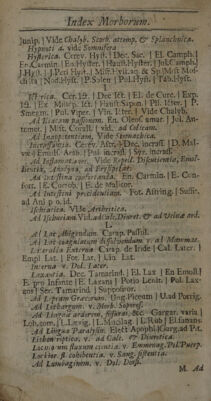 Index Morborum.
Junip. | Vide Chalyb. Stoch. attemp. & Splanchnica.
Hypnoti a. vide Somnifera
Hysterica. Cerev. Hyst. | Dec. Sac. | El. Camph. |
Em. Carmin. | Ex. Hyster. | Haust. Hyster. | Jul. Camph.
J. Hyst. | J. Perl Hyst. | Mist. & Sp. Mist
| Nod. Hyst. | P. Solen | Pul. Hyst. | Tab. Hyst.
I
Icterica. Cer. Ict. | Dec Ict. | El. de Curc. | Exp.
Ict. | Ex Millep. Ict. | Haust Sapon. | Pil. Icter. | P.
Smegm. | Pul. Viper. | Vin. Icter. | Vide Chalyb.
Ad Iliacam passionem. En. Oleos. amar. | Jul. An-
temet. | Mitt. Coralli. | vid. ad Colicam.
Ad Inappetentiam, Vide Stomachica.
Incrassantia. Cerev. Astr. | Dec. incrass. | D. Mal-
væ | Emuls. Arth. | Pul. incrass. | Syr. incrass.
Ad Inflammatores. Vide Repell. Discutientia, Emol-
lientia, Anodyna, ad Erysipelas.
Ad Intestina roboranda. En. Carmin. | E. Con-
fort. | E. Corrob. | E. de Masticor.
Ad Intestini procidentiam. Fot. Astring. | Suffit.
ad Ani p o. id.
Ischiatica. Vide Arthritica.
Ad Ischuriam. Vid. ad Calc. Diuret. & ad Urinæ ard.
L
Ad Lac Abigendum. Carap. Puffil.
Ad Lac coagulatum dissolvendum v. ad Mammas.
Lavantia Externa Carap. de Iride | Cat. Later. |
Empl Lat. | Fot. Lat. | Lin. Lat.
Interna v. Dol. Later.
Laxantia. Dec. Tamarind. | El. Lax | En Emoll. |
E. pro Infante | E. Laxans | Potio Lenit. | Pol. Lax-
ans | Ser. Tamarind. | Suppositor.
Ad Lepram Græcorum. Ung. Piceum | U. ad Porrig.
Ad Lethargum. v. Morb. Soporos.
Ad Linguæ ardorem, fissuras, &c. Gargar. varia |
Loh. com. | L. Lævig. | L. Mucilag. | L. Rub. | El. sanans
Ad Linguæ Paralysin. Elect. Apophl. | Garg. ad Par.
Lithontriptica, v. ad Calc. & Diuretica.
Lochiorum fluxum cientia v. Emmenag. Pol. Puerp.
Lochior. fl. cohibentia. v. Sang. sistentia.
Ad Lumbaginem. v. Dol. Dorsi.
M. Ad